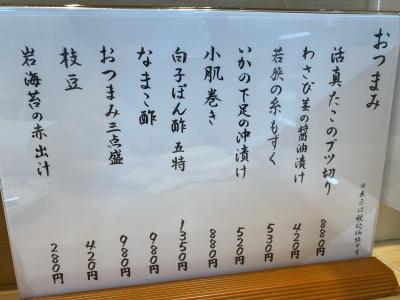 おつまみ
※表示は税込価格です
活真たこのブツ切り 880円
わさび茎の醤油漬け 420円
若狭の糸もずく 530円
いかの下足の沖漬け 520円
小肌巻き 880円
白子ぽん酢 五特 1350円
なまこ酢 980円
おつまみ三点盛 980円
枝豆 420円
岩海苔の赤出汁 280円